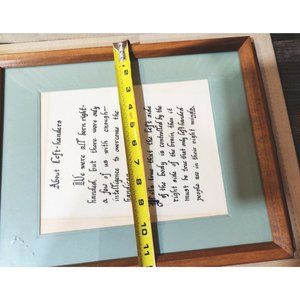 About Left-handers
We were all born right-
handed, but there were only
a few of us with enough
intelligence to overcome the
handicap.
If it's true that the left side
of the body is controlled by the
right side of the brain, then it
must be true that only left-handed
people are in their right minds.
2
3
4
5
6
7
8
9
10
11